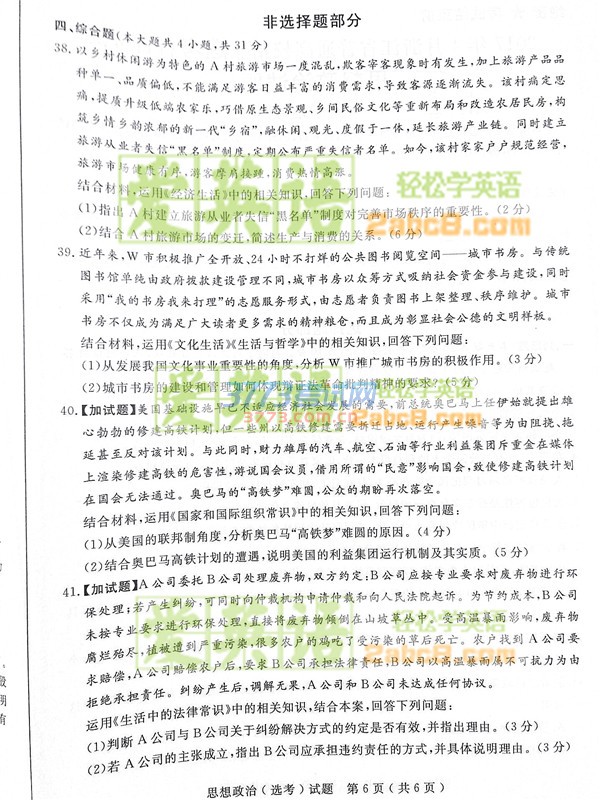 非选择题部分
四、综合题(本大题共4小题,共31分)
38. 以乡村休闲游为特色的A村旅游市场一度混乱,欺客宰客现象时有发生,加上旅游产品品
种单一、品质偏低,不能满足游客日益丰富的消费需求,导致客源逐渐流失。该村痛定思
痛,提质升级低端农家乐,巧借原生态景观、乡间民俗文化等重新布局和改造农居民房,构
筑乡情乡韵浓郁的新一代“乡宿”,融休闲、观光、度假于一体,延长旅游产业链。同时建立
旅游从业者失信“黑名单”制度,定期公布严重失信者名单。如今,该村家家户户规范经营,
旅游市场健康有序,游客摩肩接踵,消费热情高涨。
结合材料,运用《经济生活》中的相关知识,回答下列问题:
(1)指出A村建立旅游从业者失信“黑名单”制度对完善市场秩序的重要性。(2分)
(2)结合A村旅游市场的变迁,简述生产与消费的关系。(6分)
39. 近年来,W市积极推广全开放、24小时不打烊的公共图书阅览空间——城市书房。与传统
图书馆单纯由政府拨款建设管理不同,城市书房以众筹方式吸纳社会资金参与建设,同时
采用“我的书房我来打理”的志愿服务形式,由志愿者负责图书上架整理、秩序维护。城市
书房不仅成为满足广大读者更多需求的精神粮仓,而且成为彰显社会公德的文明样板。
结合材料,运用《文化生活》《生活与哲学》中的相关知识,回答下列问题:
(1)从发展我国文化事业重要性的角度,分析W市推广城市书房的积极作用。(3分)
(2)城市书房的建设和管理如何体现辩证法革命批判精神的要求?(5分)
40.【加试题】美国基础设施早已不适应经济社会发展的需要,前总统奥巴马上任伊始就提出雄
心勃勃的修建高铁计划,但一些州以高铁修建需要拆迁占地、运行产生噪音等为由阻挠、拖
延甚至反对该计划。与此同时,财力雄厚的汽车、航空、石油等行业利益集团斥重金在媒体
上渲染修建高铁的危害性,游说国会议员,借用所谓的“民意”影响国会,致使修建高铁计划
在国会无法通过。奥巴马的“高铁梦”难圆,公众的期盼再次落空。
结合材料,运用《国家和国际组织常识》中的相关知识,回答下列问题:
(1)从美国的联邦制角度,分析奥巴马“高铁梦”难圆的原因。(4分)
(2)结合奥巴马高铁计划的遭遇,说明美国的利益集团运行机制及其实质。(5分)
41.【加试题】A公司委托B公司处理废弃物,双方约定:B公司应按专业要求对废弃物进行环
保处理;若产生纠纷,可同时向仲裁机构申请仲裁和向人民法院起诉。为节约成本,B公司
未按专业要求进行环保处理,直接将废弃物倾倒在山坡草丛中。受高温暴雨影响,废弃物
腐烂殆尽,植被遭到严重污染,很多农户的鸡吃了受污染的草后死亡。农户找到A公司要
求赔偿,A公司赔偿农户后,要求B公司承担法律责任,B公司以高温暴雨属不可抗力为由
拒绝承担责任。纠纷产生后,调解无果,A公司和B公司未达成任何协议。
运用《生活中的法律常识》中的相关知识,结合本案,回答下列问题:
(1)判断A公司与B公司关于纠纷解决方式的约定是否有效,并指出理由。(3分)
(2)若A公司的主张成立,指出B公司应承担违约责任的方式,并具体说明理由。(3分)
思想政治(选考)试题 第6页(共6页)
轻松学英语
2abc8.com